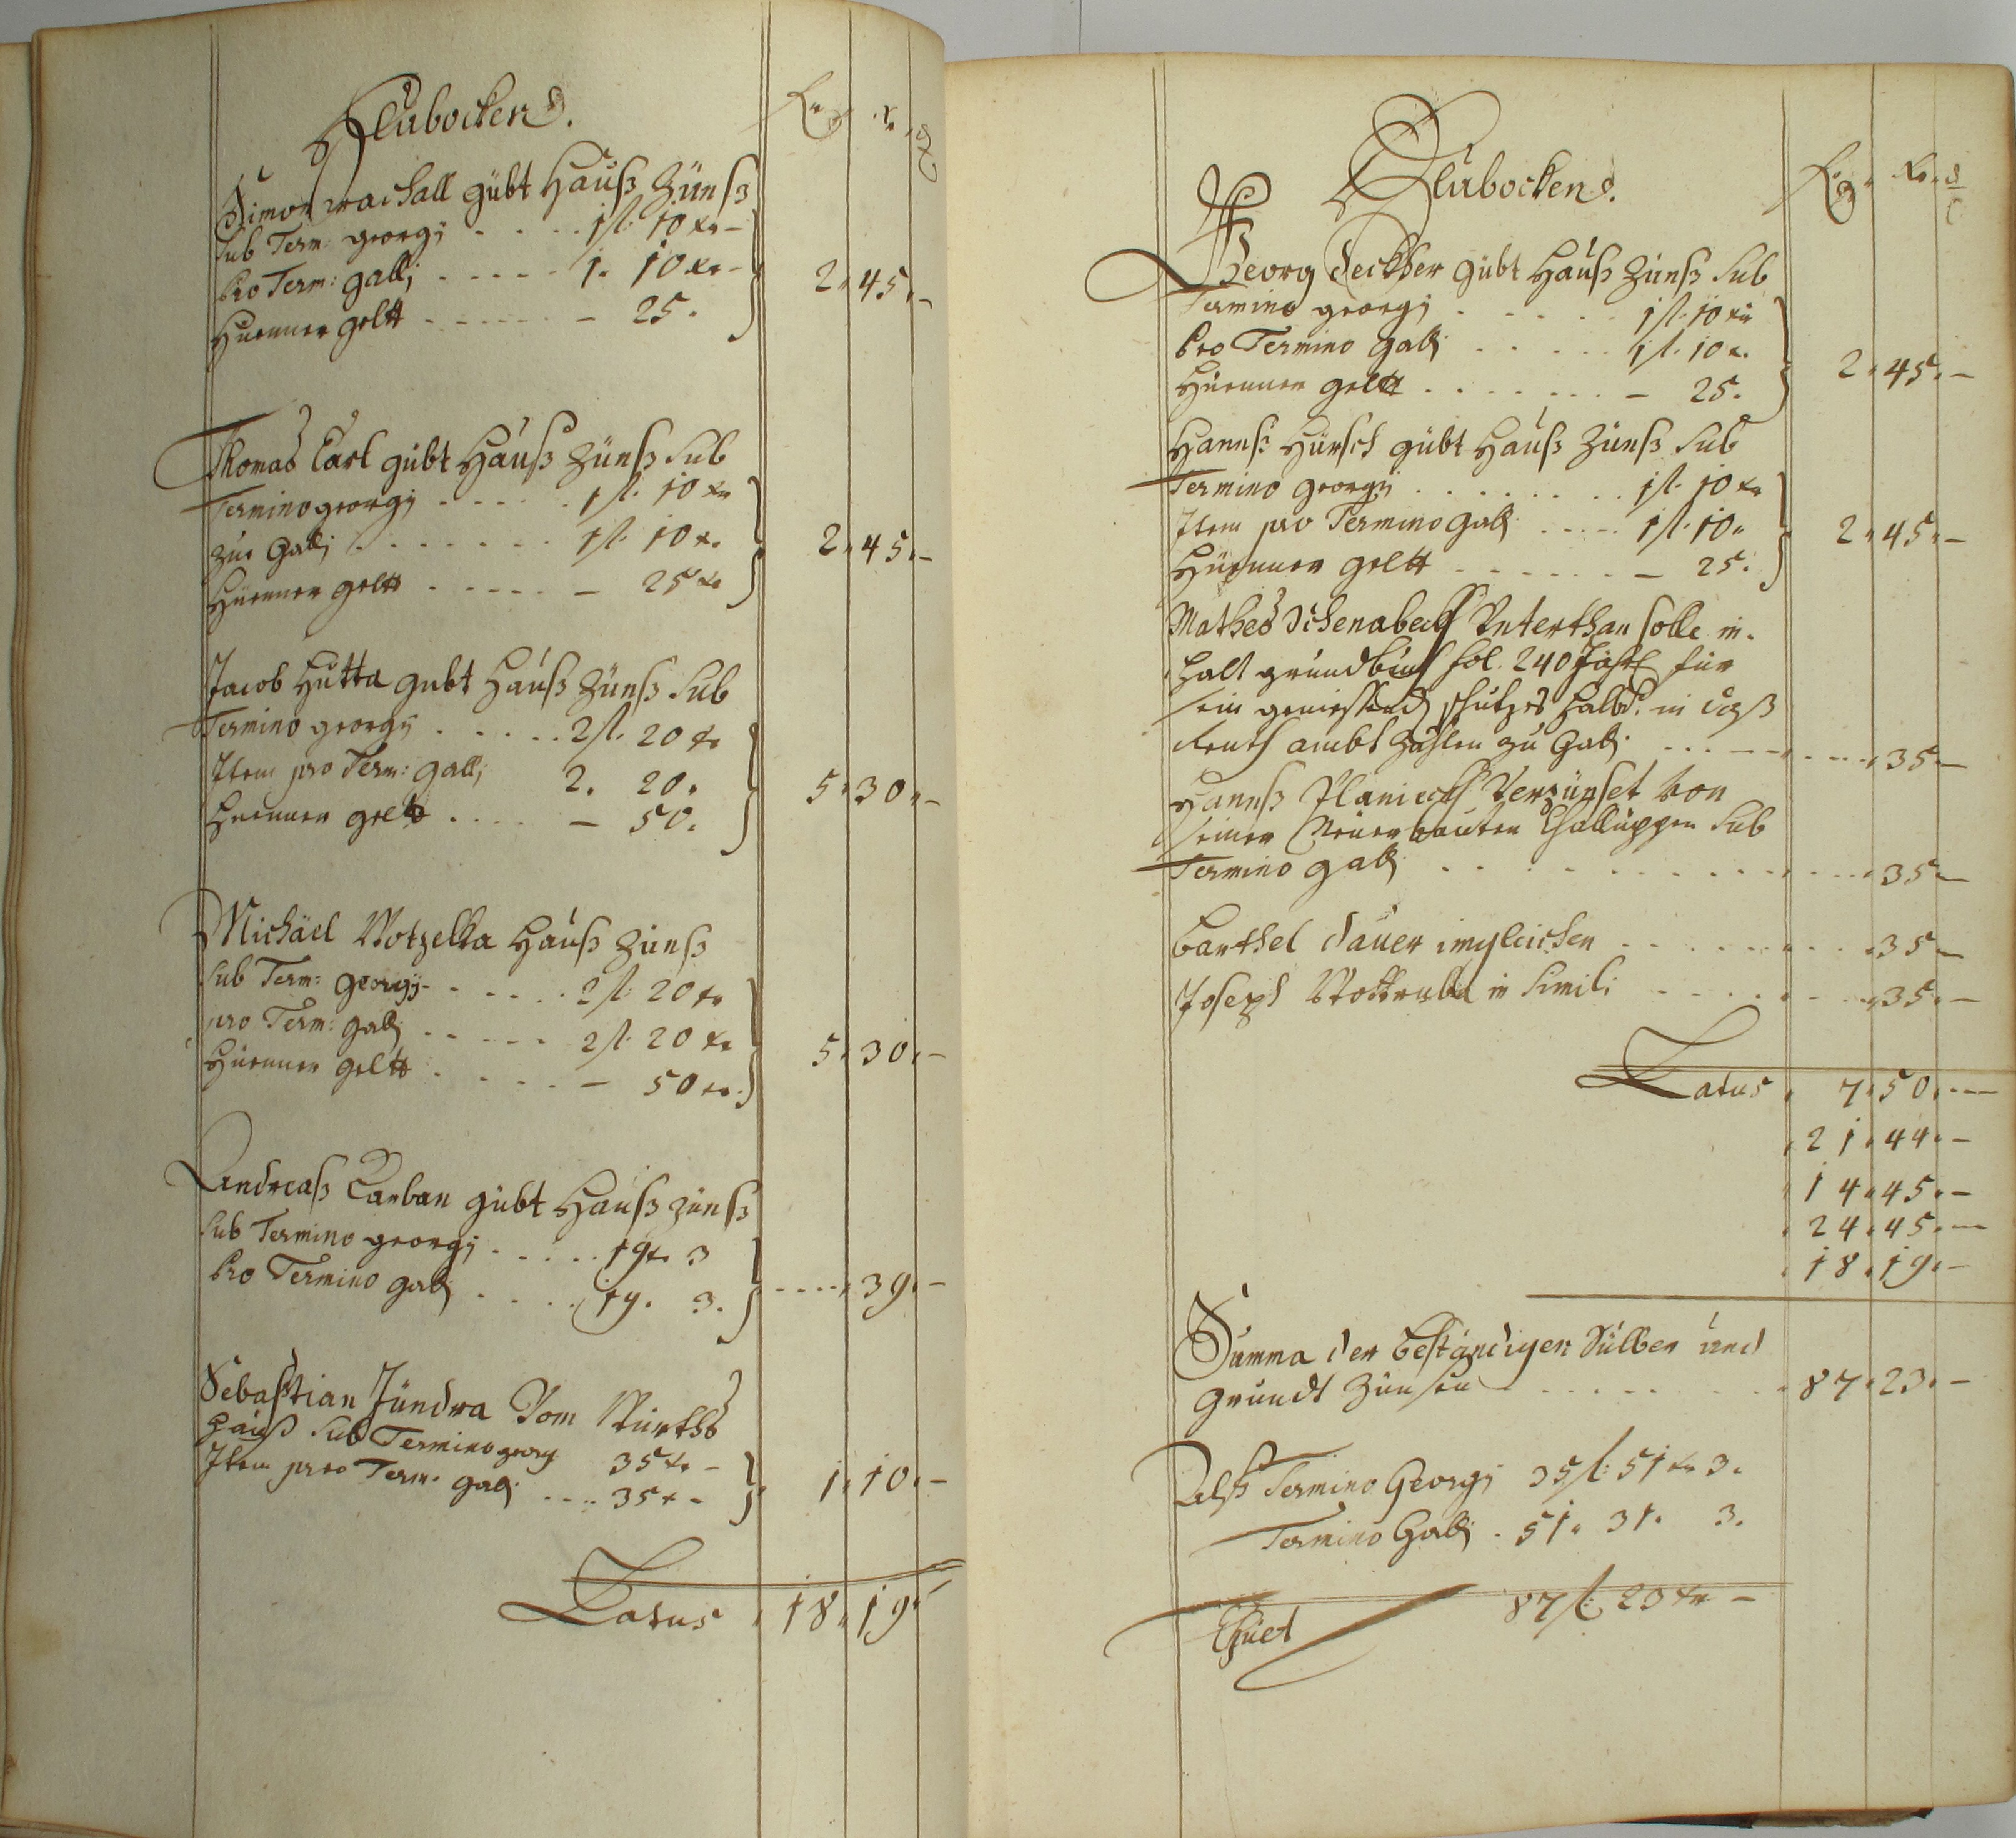 Klubocken.
Simon Machall gübt Hauß Zünß
sub Term: georgij . . . . 1 fl: 10 xr –
Pro Term: gallj . . . . . 1. 10 xr –
Huenner geltt . . . . . – 25. 2. 45. –
Thomas Carl gübt Hauß Zünß sub
Termino georgij . . . . . 1 fl. 10 xr
zue Gallj . . . . . . . 1 fl. 10 x. 2. 45. –
Hüenner geltt . . . . . – 25 xr
Jacob Hutta gubt Hauß Zünß sub
Termino georgij . . . . . 2 fl. 20 xr
Item pro Term: gallj 2. 20. 5. 30. –
Huenner geltt . . . . – 50.
Michäel Wotzelka Hauß Zünß
sub Term: georgij . . . . . 2 fl: 20 xr
pro Term: gallj . . . . . 2 fl. 20 xr 5. 30. –
Hüenner geltt . . . . . – 50 xr.
Andreaß Carban gübt Hauß Zünß
sub Termino georgij . . . . . 19 x. 3
Pro Termino gallj . . . . 19. 3. . . . . 39. –
Sebastian Jündra Vom Würths
hauß sub Termino georgj 35 xr –
Item pro Term. gallj . . . . 35 x – 1. 10. –
Latus . 18. 19.
Klubocken.
Georg Deckher gübt Hauß Zünß sub
Termino georgij . . . . . 1 fl. 10 xr
Pro Termino gallj . . . . . 1 fl. 10 x. 2. 45. –
Hüenner geltt . . . . . . . – 25.
Hannß Hürsch gübt Hauß Zünß sub
Termino georgij . . . . . . . . 1 fl. 10 xr
Item pro Termino gallj . . . . . 1 fl. 10. 2. 45. –
Hüenner geltt . . . . . . . – 25.
Mathes Unterthan solle in-
halt grundbuch fol. 240 Jährl für
sein geniessend schutzes halb. in
Renth ambt zahlen zu Gallj . . . . 35. –
Hannß Verzünset Von
seiner Neüerbauten Challuppen sub
Termino gallj . . . . . . . . . . 35. –
Barthel Sauer imgleichen . . . . . . . . 35 –
Joseph Wottruba in simili . . . . . . . 35. –
Latus . 7. 50. –
. 21. 44. –
. 14. 45. –
. 24. 45. –
. 18. 19. –
Summa der beständigen Sülber und
Grundt Zünsen . . . . . . . . . 87. 23. –
Alß Termino Georgij 35 fl: 51 xr 3.
Termino Gallj . 51. 31. 3.
87 fl: 23 xr –